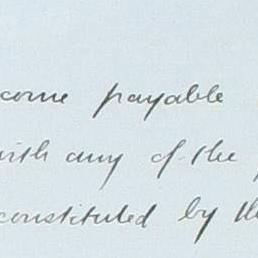 come payable
with any of the
constituted by the